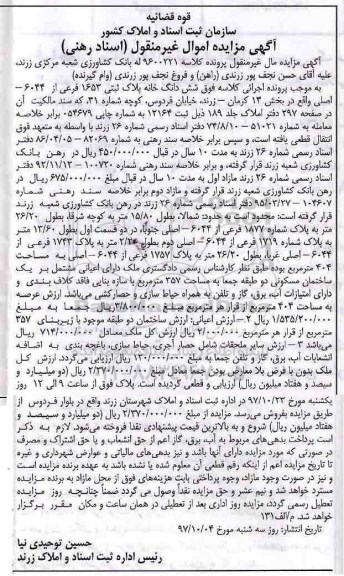 قوه قضائیه
سازمان ثبت اسناد و املاک کشور
آگهی مزایده اموال غیرمنقول (اسناد رهنی)
آگهی مزایده مال غیرمنقول پرونده کلاسه ۹۶۰۰۲۲۱ له بانک کشاورزی شعبه مرکزی زرند،
علیه آقای حسن نجف پور زرندی (راهن) و فروغ نجف پور زرندی (وام گیرنده)
به موجب پرونده اجرائی کلاسه فوق شش دانگ خانه پلاک ثبتی ۱۶۵۳ فرعی از – ۶۰۴۴
اصلی واقع در بخش ۱۳ کرمان – زرند، خیابان فردوس، کوچه شماره ۳۱، که سند مالکیت آن
در صفحه ۲۹۷ دفتر املاک جلد ۱۸۹ ذیل ثبت ۱۲۱۶۴ به شماره چاپی ۰۵۴۶۷۹ برابر خلاصه
معامله به شماره ۵۱۰۲۱ – ۷۴/۸/۱۰ دفتر اسناد رسمی شماره ۲۶ زرند با واسطه به متعهد فوق
انتقال قطعی یافته است، و سپس برابر خلاصه سند رهنی به شماره ۸۲۰۶۹ – ۸۶/۰۴/۰۵ دفتر
اسناد رسمی شماره ۲۶ زرند به مدت ۱۰ سال در قبال ۴۵۰/۰۰۰/۰۰۰ ریال در رهن بانک
کشاورزی شعبه زرند قرار گرفته، و برابر خلاصه سند رهنی شماره ۱۰۰۷۳۰ – ۹۲/۱۱/۱۲ دفتر
اسناد رسمی شماره ۲۶ زرند مازاد اول به مدت ۱۰ سال در قبال مبلغ ۶۷۵/۰۰۰/۰۰۰ ریال در
رهن بانک کشاورزی شعبه زرند قرار گرفته و مازاد دوم برابر خلاصه سند رهنی شماره
۱۰۴۶۰۷ – ۹۵/۰۳/۲۷ دفتر اسناد رسمی شماره ۲۶ زرند در رهن بانک کشاورزی شعبه زرند
قرار گرفته است: محدود است به حدود: شمالا، بطول ۱۵/۸۰ متر به کوچه شرقا، بطول ۲۶/۲۰
متر به پلاک شماره ۱۸۷۷ فرعی از ۶۰۴۴ – اصلی جنوبا، در دو قسمت اول بطول ۱۳/۶۰ متر
به پلاک شماره ۱۷۱۹ فرعی از ۶۰۴۴ – اصلی دوم بطول متر به پلاک ۱۷۴۳ فرعی از
۶۰۴۴ – اصلی غربا، بطول ۲۶/۲۰ متر به پلاک ۱۷۵۷ فرعی از ۶۰۴۴ – اصلی به مساحت
۴۰۴ مترمربع بوده طبق نظر کارشناس رسمی دادگستری ملک دارای اعیانی مشتمل بر یک
ساختمان مسکونی دو طبقه جمعا به مساحت ۳۵۷ مترمربع با سازه بنایی فاقد کلاف بندی و
دارای امتیازات آب، برق، گاز و تلفن به همراه حیاط سازی و حصارکشی می‌باشد. ارزش عرصه
به مساحت ۴۰۴ مترمربع از قرار هر مترمربع مبلغ ۳/۸۰۰/۰۰۰ ریال جمعا به مبلغ
۱/۵۳۵/۲۰۰/۰۰۰ ریال ۲ – ارزش اعیانی: ارزش ساختمان دو طبقه موجود با زیربنای ۳۵۷
مترمربع از قرار هر مترمربع ۲/۰۰۰/۰۰۰ ریال ارزش کل ملک معادل ۷۱۴/۰۰۰/۰۰۰ ریال
می‌باشد ۳ – ارزش سایر ملحقات شامل حصار آجری، حیاط سازی، باغچه بندی به اضافه
انشعابات آب، برق، گاز و تلفن جمعا به مبلغ ۱۲۰/۰۰۰/۰۰۰ ریال ارزیابی می‌گردد. ارزش کل
ملک بدون با فرض بلا معارض بودن جمعا معادل مبلغ ۲/۳۷۰/۰۰۰/۰۰۰ ریال (دو میلیارد و
سیصد و هفتاد میلیون ریال) ارزیابی و قطعی گردیده است. پلاک فوق از ساعت ۹ الی ۱۲ روز
یکشنبه مورخ ۹۷/۱۰/۲۳ در اداره ثبت اسناد و املاک شهرستان زرند واقع در بلوار فردوس از
طریق مزایده بفروش می‌رسد. مزایده از مبلغ ۲/۳۷۰/۰۰۰/۰۰۰ ریال (دو میلیارد و سیصد و
هفتاد میلیون ریال) شروع و به بالاترین قیمت پیشنهادی نقدا فروخته می‌شود. لازم به ذکر
است پرداخت بدهی‌های مربوط به آب، برق، گاز اعم از حق انشعاب و یا حق اشتراک و مصرف
در صورتی که مورد مزایده دارای آنها باشد و نیز بدهی‌های مالیاتی و عوارض شهرداری و غیره
تا تاریخ مزایده اعم از اینکه رقم قطعی آن معلوم شده یا نشده باشد به عهده برنده مزایده است
و نیز در صورت وجود مازاد، وجوه پرداختی بابت هزینه‌های فوق از محل مازاد به برنده مزایده
مسترد خواهد شد و نیم عشر و حق مزایده نقدا وصول می گردد ضمنا چنانچه روز مزایده
تعطیل رسمی گردد، مزایده روز اداری بعد از تعطیلی در همان ساعت و مکان مقرر برگزار
خواهد شد. م/الف۱۳۱
تاریخ انتشار: روز سه شنبه مورخ ۹۷/۱۰/۰۴
حسین توحیدی نیا
رئیس اداره ثبت اسناد و املاک زرند